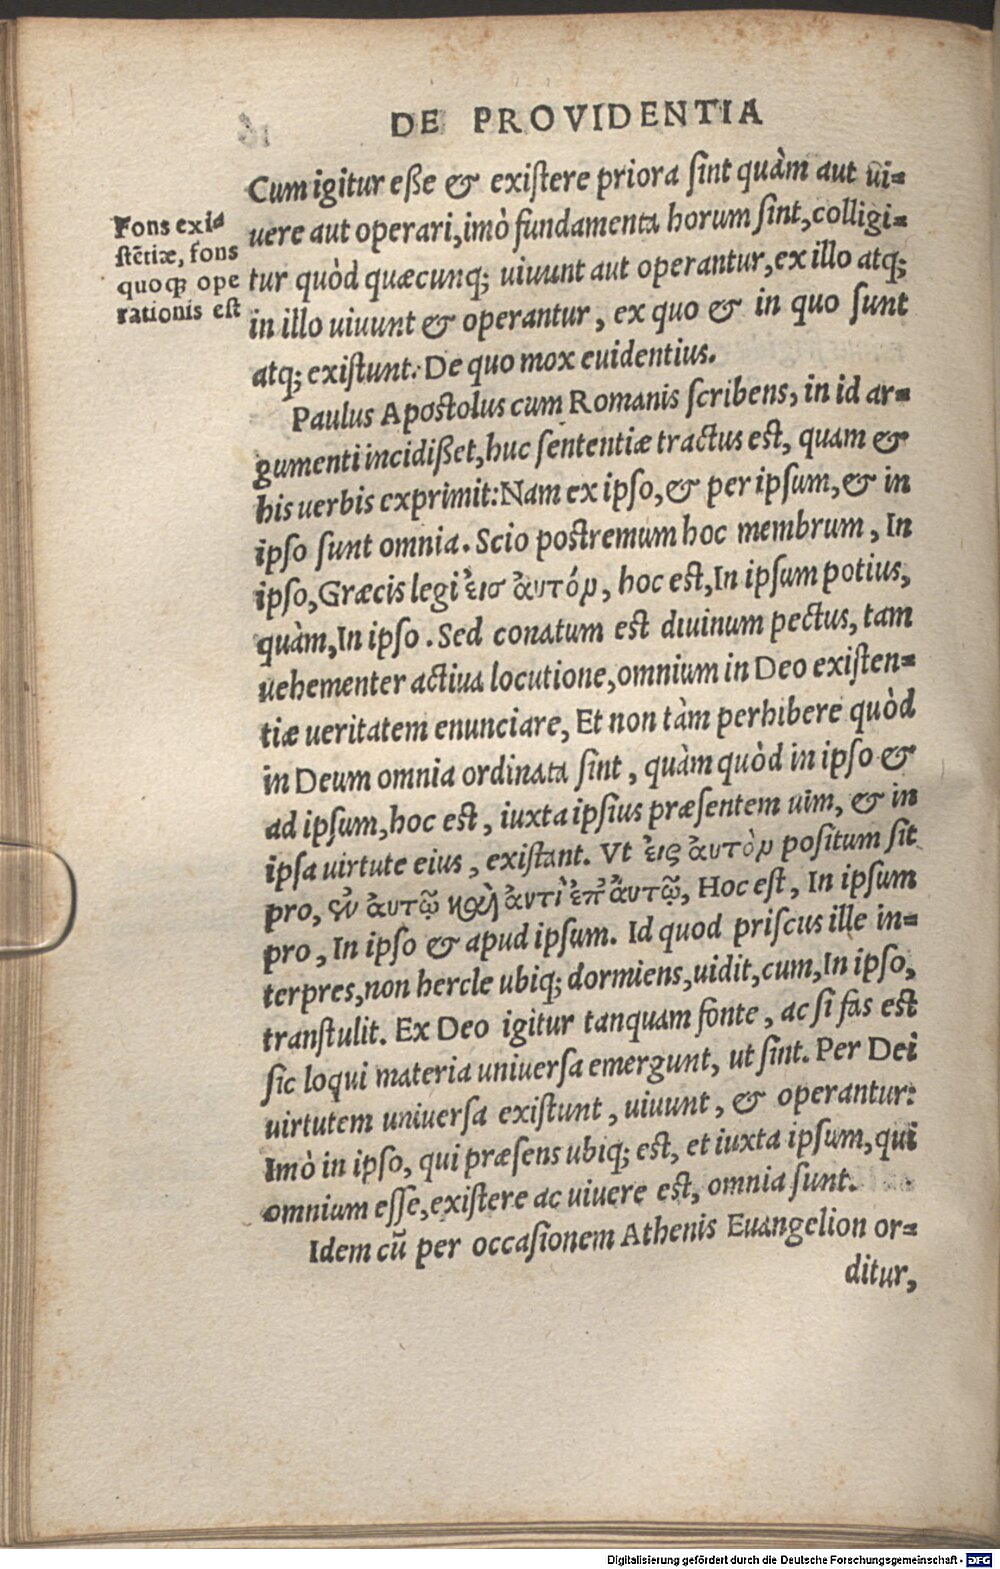 DE PROVIDENTIA
Cum igitur eße & exiſtere priora ſint quàm aut ui-
uere aut operari, imò fundamenta horum ſint, colligi-
tur quòd quæcunq; uiuunt aut operantur, ex illo atq;
in illo uiuunt & operantur, ex quo & in quo ſunt
atq; exiſtunt. De quo mox euidentius.
Fons exi-
ſtẽtiæ, fons
quoqꝫ ope
rationis eſt
Paulus Apoſtolus cum Romanis ſcribens, in id ar-
gumenti incidißet, huc ſententiæ tractus eſt, quam &
his uerbis exprimit: Nam ex ipſo, & per ipſum, & in
ipſo ſunt omnia. Scio poſtremum hoc membrum, In
ipſo, Græcis legi ἐισ ἀυτόν, hoc eſt, In ipſum potius,
quàm, In ipſo. Sed conatum eſt diuinum pectus, tam
uehementer actiua locutione, omnium in Deo exiſten-
tiæ ueritatem enunciare, Et non tàm perhibere quòd
in Deum omnia ordinata ſint, quàm quòd in ipſo &
ad ipſum, hoc eſt, iuxta ipſius præſentem uim, & in
ipſa uirtute eius, exiſtant. Vt ἐις ἀυτὸν poſitum ſit
pro, ἐν ἀυτῷ καὶ ἀντὶ ἐπ' ἀυτῷ, Hoc eſt, In ipſum
pro, In ipſo & apud ipſum. Id quod priſcus ille in-
terpres, non hercle ubiq; dormiens, uidit, cum, In ipſo,
tranſtulit. Ex Deo igitur tanquam fonte, ac ſi fas eſt
ſic loqui materia uniuerſa emergunt, ut ſint. Per Dei
uirtutem uniuerſa exiſtunt, uiuunt, & operantur:
Imò in ipſo, qui præſens ubiq; eſt, et iuxta ipſum, qui
omnium eſſe, exiſtere ac uiuere eſt, omnia ſunt.
Idem cũ per occaſionem Athenis Euangelion or-
ditur,
Digitalisierung gefördert durch die Deutsche Forschungsgemeinschaft - DFG